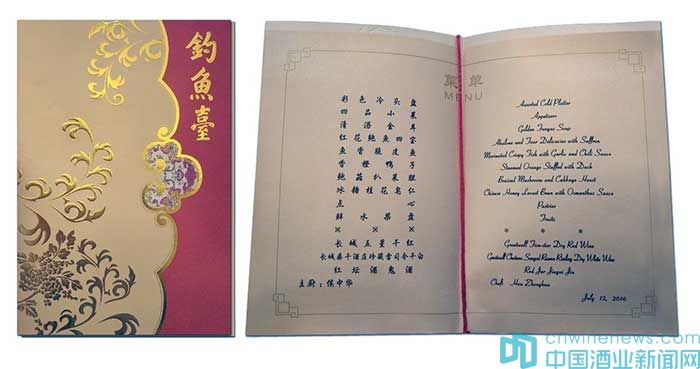 釣魚臺
菜单
MENU
彩色冷头盘
四品小菜
清汤金耳
红花鲍鱼四宝
鱼香脆皮鱼
香橙鸭子
鲍菇扒菜胆
冰糖桂花皂仁
点心
鲜水果盘
※ ※ ※
长城五星干红
长城桑干酒庄珍藏雷司令干白
红坛酒鬼酒
主厨：侯中华
Assorted Cold Platter
Appetizers
Golden Fungus Soup
Abalone and Four Delicacies with Saffron
Marinated Crispy Fish with Garlic and Chili Sauce
Steamed Orange Stuffed with Duck
Braised Mushroom and Cabbage Heart
Chinese Honey Locust Bean with Osmanthus Sauce
Pastries
Fruits
* * *
Greatwall Five-star Dry Red Wine
Greatwall Chateau Sungod Reserve Riesling Dry White Wine
Red Jar Jiugui Jiu
Chef: Hou Zhonghua
July 12, 2016
cnwinenews.com
中国酒业新闻网